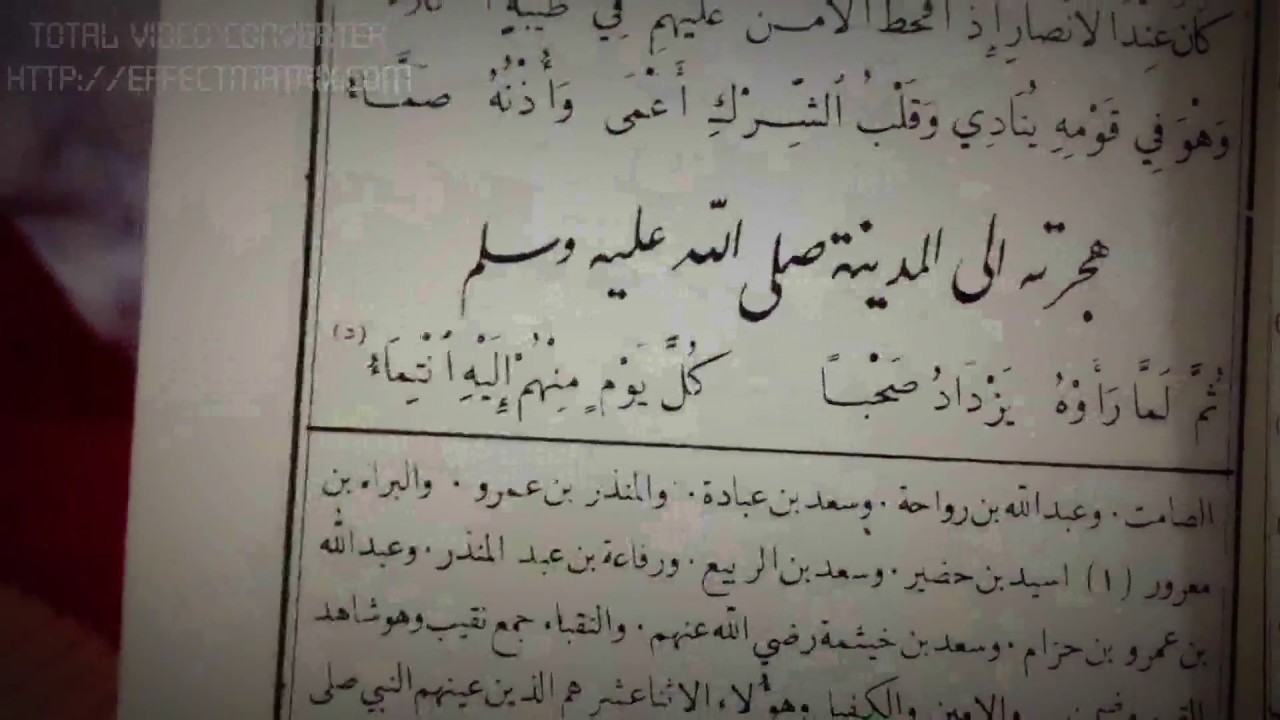 TOTAL VIDEO CONVERTER
HTTP://EFFECTMATRIX.COM
كَانَ عِنْدَ الأَنْصَارِ إِذْ الأَمْن عَلَيْهِم فِي طَيْبَةٍ
وَهْوَ فِي قَوْمِهِ يُنَادِي وَقَلْبُ ٱلشِّرْكِ أَعْمَى وَأُذْنُهُ صَمَّاءُ
هجرته الى المدينة صلى الله عليه وسلم
ثُمَّ لَمَّا رَأَوْهُ يَزْدَادُ صَحْبًا كُلَّ يَوْمٍ مِنْهُمْ إِلَيْهِ ٱنْتِمَاءُ (٥)
الصامت . وعبد الله بن رواحة . وسعد بن عبادة . والمنذر بن عمرو . والبراء بن
معرور (١) اسيد بن حضير . وسعد بن الربيع . ورفاعة بن عبد المنذر . وعبد الله
بن عمرو بن حزام . وسعد بن خيثمة رضي الله عنهم . والنقباء جمع نقيب وهو شاهد
والامين والكفيل وهؤلاء الاثنا عشر هم الذين عينهم النبي صلى